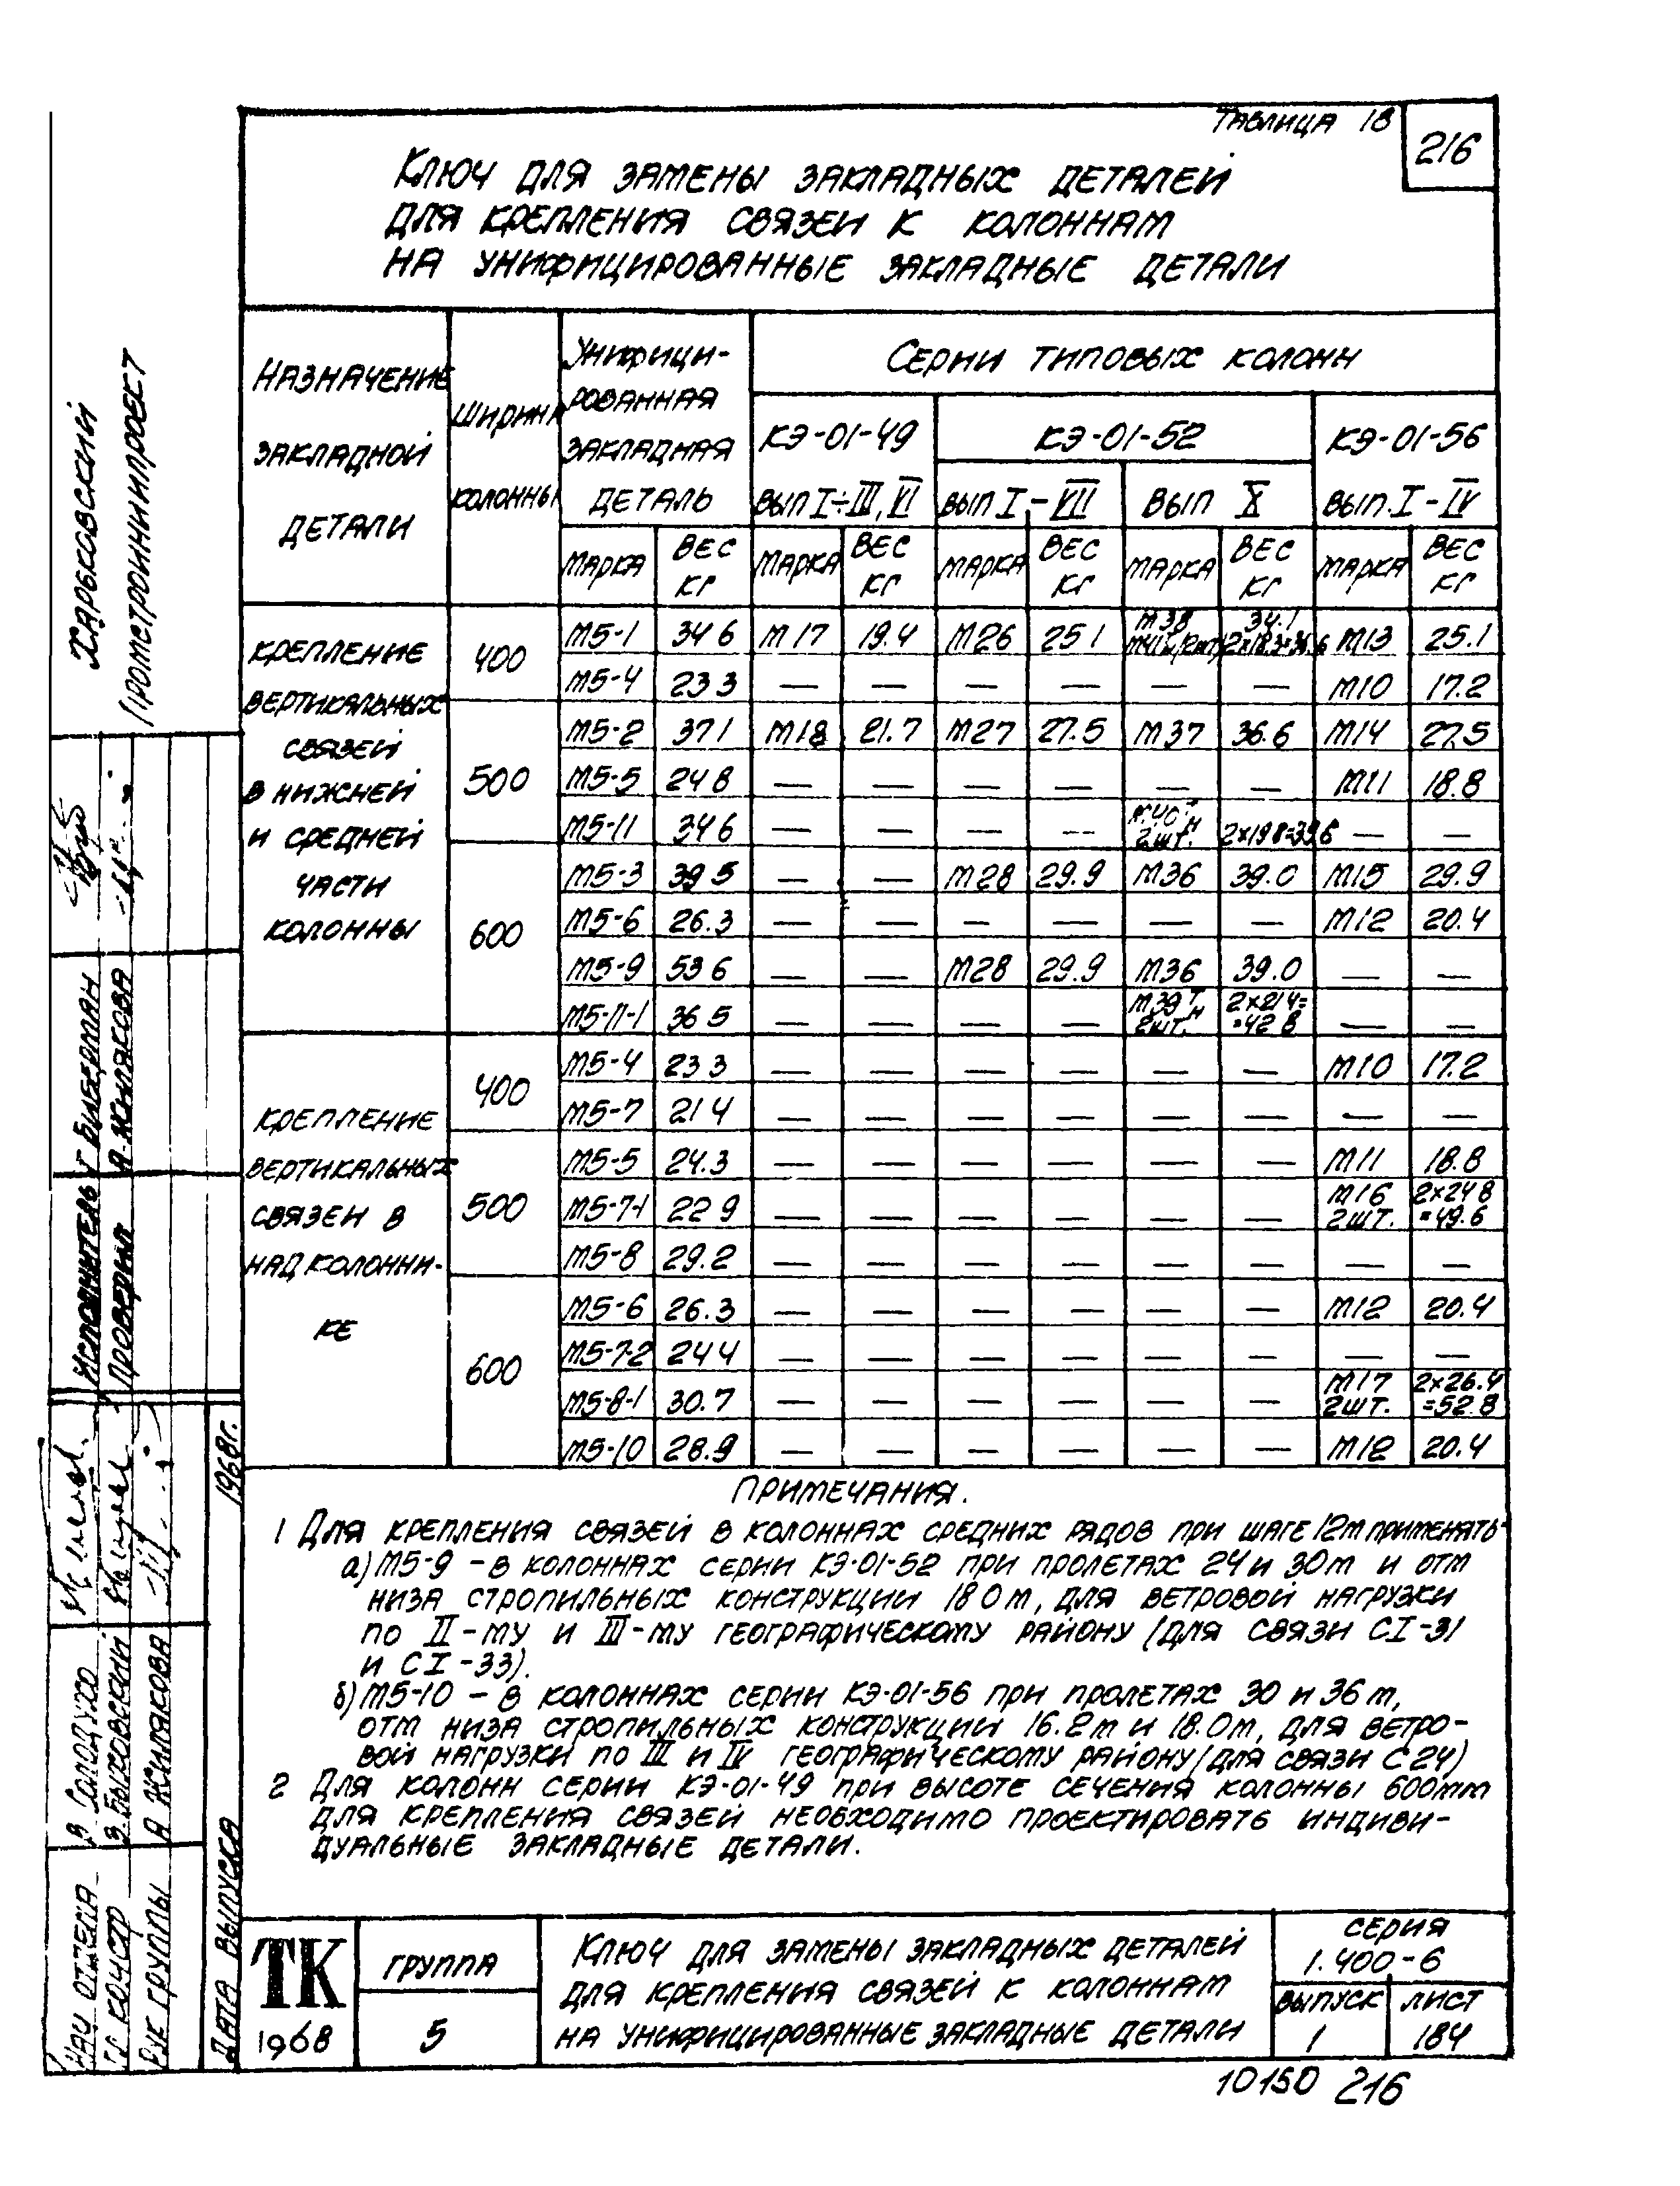 Таблица 18
216
Ключ для замены закладных деталей
для крепления связей к колоннам
на унифицированные закладные детали
Назначение закладной детали
Ширина колонны
Унифици-
рованная
закладная
деталь
Серии типовых колонн
КЭ-01-49 КЭ-01-52 КЭ-01-56
Вып I÷III, VI Вып I-VII Вып X Вып. I-IV
Марка Вес кг Марка Вес кг Марка Вес кг Марка Вес кг Марка Вес кг
Крепление
вертикальных
связей
в нижней
и средней
части
колонны
400
М5-1 34 6 М17 19.4 М26 25 1 М38 34.1 М13 25.1
М5-4 23 3 — — — — — — М10 17.2
500
М5-2 37 1 М18 21.7 М27 27.5 М37 36.6 М14 27.5
М5-5 24 8 — — — — — — М11 18.8
М5-11 34 6 — — — — М40 т н 2шт. 2×19 8=39 6 — —
600
М5-3 39 5 — — М28 29.9 М36 39.0 М15 29.9
М5-6 26.3 — — — — — — М12 20.4
М5-9 53 6 — — М28 29.9 М36 39.0 — —
М5-11-1 36 5 — — — — М39 т н 2шт. 2×21 4= =42 8 — —
Крепление
вертикальных
связен в
надколонни-
ке
400
М5-4 23 3 — — — — — — М10 17.2
М5-7 21 4 — — — — — — — —
500
М5-5 24.3 — — — — — — М11 18.8
М5-7-1 22 9 — — — — — — М16 2шт. 2×24 8 =49.6
М5-8 29.2 — — — — — — — —
600
М5-6 26.3 — — — — — — М12 20.4
М5-7-2 24 4 — — — — — — — —
М5-8-1 30.7 — — — — — — М17 2шт. 2×26.4 =52.8
М5-10 28.9 — — — — — — М12 20.4
Примечания.
1 Для крепления связей в колоннах средних рядов при шаге 12м применять
а) М5-9 – в колоннах серии КЭ-01-52 при пролетах 24 и 30м и отм
низа стропильных конструкции 18 0м, для ветровой нагрузки
по II-му и III-му географическому району (для связи СI-31
и СI-33).
б) М5-10 – в колоннах серии КЭ-01-56 при пролетах 30 и 36м,
отм низа стропильных конструкции 16.2м и 18.0м, для ветро-
вой нагрузки по III и IV географическому району (для связи С24)
2 Для колонн серии КЭ-01-49 при высоте сечения колонны 600мм
для крепления связей необходимо проектировать индиви-
дуальные закладные детали.
ТК
1968
группа
5
Ключ для замены закладных деталей
для крепления связей к колоннам
на унифицированные закладные детали
серия
1.400-6
выпуск лист
1 184
10150 216
Харьковский
Промстройниипроект
Исполнитель Г Биберман
Проверил А. Жилякова
Нач отдела В Солодухо
Гл констр Э. Быховский
Рук группы А Жилякова
Дата выпуска 1968г.